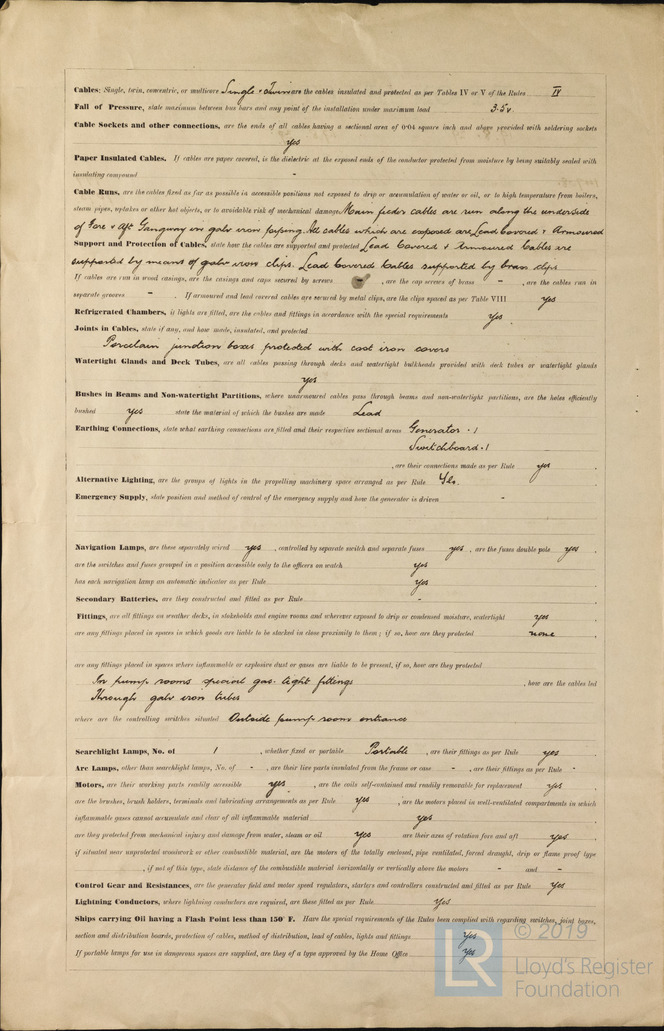 Cables: Single, twin, concentric, or multicore Single & Twin are the cables insulated and protected as per Tables IV or V of the Rules IV
Fall of Pressure, state maximum between bus bars and any point of the installation under maximum load 3.5v.
Cable Sockets and other connections, are the ends of all cables having a sectional area of 0·04 square inch and above provided with soldering sockets
yes
Paper Insulated Cables. If cables are paper covered, is the dielectric at the exposed ends of the conductor protected from moisture by being suitably sealed with
insulating compound -
Cable Runs, are the cables fixed as far as possible in accessible positions not exposed to drip or accumulation of water or oil, or to high temperature from boilers,
steam pipes, uptakes or other hot objects, or to avoidable risk of mechanical damage Main feeder cables are run along the underside
of Fore & Aft Gangway in galv iron piping. All cables which are exposed are Lead Covered & Armoured
Support and Protection of Cables, state how the cables are supported and protected Lead Covered & Armoured Cables are
supported by means of galv iron clips. Lead Covered Cables supported by brass clips
If cables are run in wood casings, are the casings and caps secured by screws - , are the cap screws of brass - , are the cables run in
separate grooves - . If armoured and lead covered cables are secured by metal clips, are the clips spaced as per Table VIII yes
Refrigerated Chambers, if lights are fitted, are the cables and fittings in accordance with the special requirements yes .
Joints in Cables, state if any, and how made, insulated, and protected
Porcelain junction boxes protected with cast iron covers
Watertight Glands and Deck Tubes, are all cables passing through decks and watertight bulkheads provided with deck tubes or watertight glands
yes
Bushes in Beams and Non-watertight Partitions, where unarmoured cables pass through beams and non-watertight partitions, are the holes efficiently
bushed yes state the material of which the bushes are made Lead
Earthing Connections, state what earthing connections are fitted and their respective sectional areas Generator · 1
Switchboard · 1
, are their connections made as per Rule yes .
Alternative Lighting, are the groups of lights in the propelling machinery space arranged as per Rule Yes.
Emergency Supply, state position and method of control of the emergency supply and how the generator is driven -
Navigation Lamps, are these separately wired yes , controlled by separate switch and separate fuses yes , are the fuses double pole yes .
are the switches and fuses grouped in a position accessible only to the officers on watch yes
has each navigation lamp an automatic indicator as per Rule yes
Secondary Batteries, are they constructed and fitted as per Rule -
Fittings, are all fittings on weather decks, in stokeholds and engine rooms and wherever exposed to drip or condensed moisture, watertight yes
are any fittings placed in spaces in which goods are liable to be stacked in close proximity to them; if so, how are they protected none .
are any fittings placed in spaces where inflammable or explosive dust or gases are liable to be present, if so, how are they protected
In pump rooms special gas-tight fittings , how are the cables led
Through galv iron tubes
where are the controlling switches situated Outside pump room entrance
Searchlight Lamps, No. of 1 , whether fixed or portable Portable , are their fittings as per Rule yes
Arc Lamps, other than searchlight lamps, No. of - , are their live parts insulated from the frame or case - , are their fittings as per Rule -
Motors, are their working parts readily accessible yes , are the coils self-contained and readily removable for replacement yes ,
are the brushes, brush holders, terminals and lubricating arrangements as per Rule yes , are the motors placed in well-ventilated compartments in which
inflammable gases cannot accumulate and clear of all inflammable material yes
are they protected from mechanical injury and damage from water, steam or oil yes are their axes of rotation fore and aft yes .
if situated near unprotected woodwork or other combustible material, are the motors of the totally enclosed, pipe ventilated, forced draught, drip or flame proof type
, if not of this type, state distance of the combustible material horizontally or vertically above the motors - and -
Control Gear and Resistances, are the generator field and motor speed regulators, starters and controllers constructed and fitted as per Rule yes
Lightning Conductors, where lightning conductors are required, are these fitted as per Rule yes
Ships carrying Oil having a Flash Point less than 150° F. Have the special requirements of the Rules been complied with regarding switches, joint boxes,
section and distribution boards, protection of cables, method of distribution, lead of cables, lights and fittings yes
If portable lamps for use in dangerous spaces are supplied, are they of a type approved by the Home Office yes
LR © 2019
Lloyd's Register
Foundation